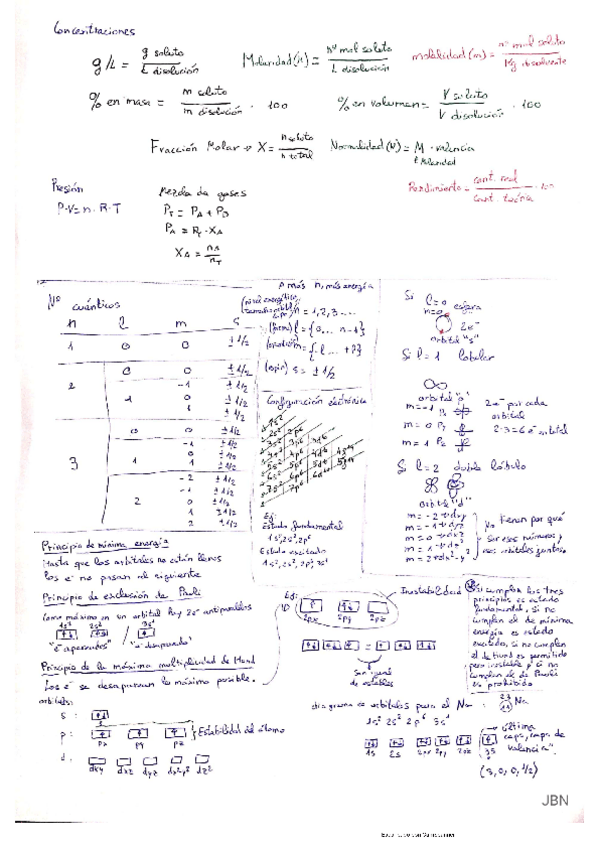 Concentraciones
g/L = g soluto / L disolución
Molaridad (M) = nº mol soluto / L disolución
molalidad (m) = nº mol soluto / Kg disolvente
% en masa = m soluto / m disolución · 100
% en volumen = V soluto / V disolución · 100
Fracción Molar → X = n soluto / n total
Normalidad (N) = M · valencia
Molaridad
Presión
P·V = n·R·T
Mezcla de gases
PT = PA + PB
PA = PT · XA
XA = nA / nT
Rendimiento = cant. real / cant. teórica · 100
Nº cuánticos
n l m s
1 0 0 ± 1/2
2 0 0 ± 1/2
1 -1 ± 1/2
0 ± 1/2
1 ± 1/2
3 0 0 ± 1/2
1 -1 ± 1/2
0 ± 1/2
1 ± 1/2
2 -2 ± 1/2
-1 ± 1/2
0 ± 1/2
1 ± 1/2
2 ± 1/2
A más n, más energía
n = 1, 2, 3 ...
(forma) l = {0, ... n-1}
m = {-l ... +l}
(espín) s = ± 1/2
Configuración electrónica
1s²
2s² 2p⁶
3s² 3p⁶ 3d¹⁰
4s² 4p⁶ 4d¹⁰ 4f¹⁴
5s² 5p⁶ 5d¹⁰ 5f¹⁴
6s² 6p⁶
7s² 7p⁶
Ej:
Estado fundamental
1s², 2s², 2p⁶
Estado excitado
Si l = 0 esfera
m = 0
2e⁻
orbital "s"
Si l = 1 lobular
orbital "p"
m = -1
m = 0
m = 1
2e⁻ por cada orbital
2·3 = 6e⁻ orbital
Si l = 2 doble lóbulo
orbital "d"
m = -2 → dxy
m = -1
m = 0
m = 1
m = 2
No tienen por qué
ser esos números y
esos orbitales juntos
Principio de mínima energía
Hasta que los orbitales no están llenos
los e⁻ no pasan al siguiente
Principio de exclusión de Pauli
Como máximo en un orbital hay 2e⁻ antiparalelos
1s² 2s² 3s¹
"e⁻ apareados" "e⁻ desapareado"
Principio de la máxima multiplicidad de Hund
Los e⁻ se desaparean lo máximo posible.
orbitales:
s :
s
p : Estabilidad del átomo
px py pz
d :
dxy dxz dyz dx²y² dz²
Ej:
Inestabilidad
2px 2py 2pz
Son igual de estables
Si cumplen los tres
principios es estado
fundamental, si no
cumplen el de mínima
energía es estado
excitado, si no cumplen
el de Hund es permitido
pero inestable y si no
cumplen el de Pauli
es prohibido
diagrama de orbitales para el Na : 23 11 Na
1s² 2s² 2p⁶ 3s¹
1s 2s 2px 2py 2pz 3s
última
capa, capa de
valencia
(3, 0, 0, 1/2)
JBN